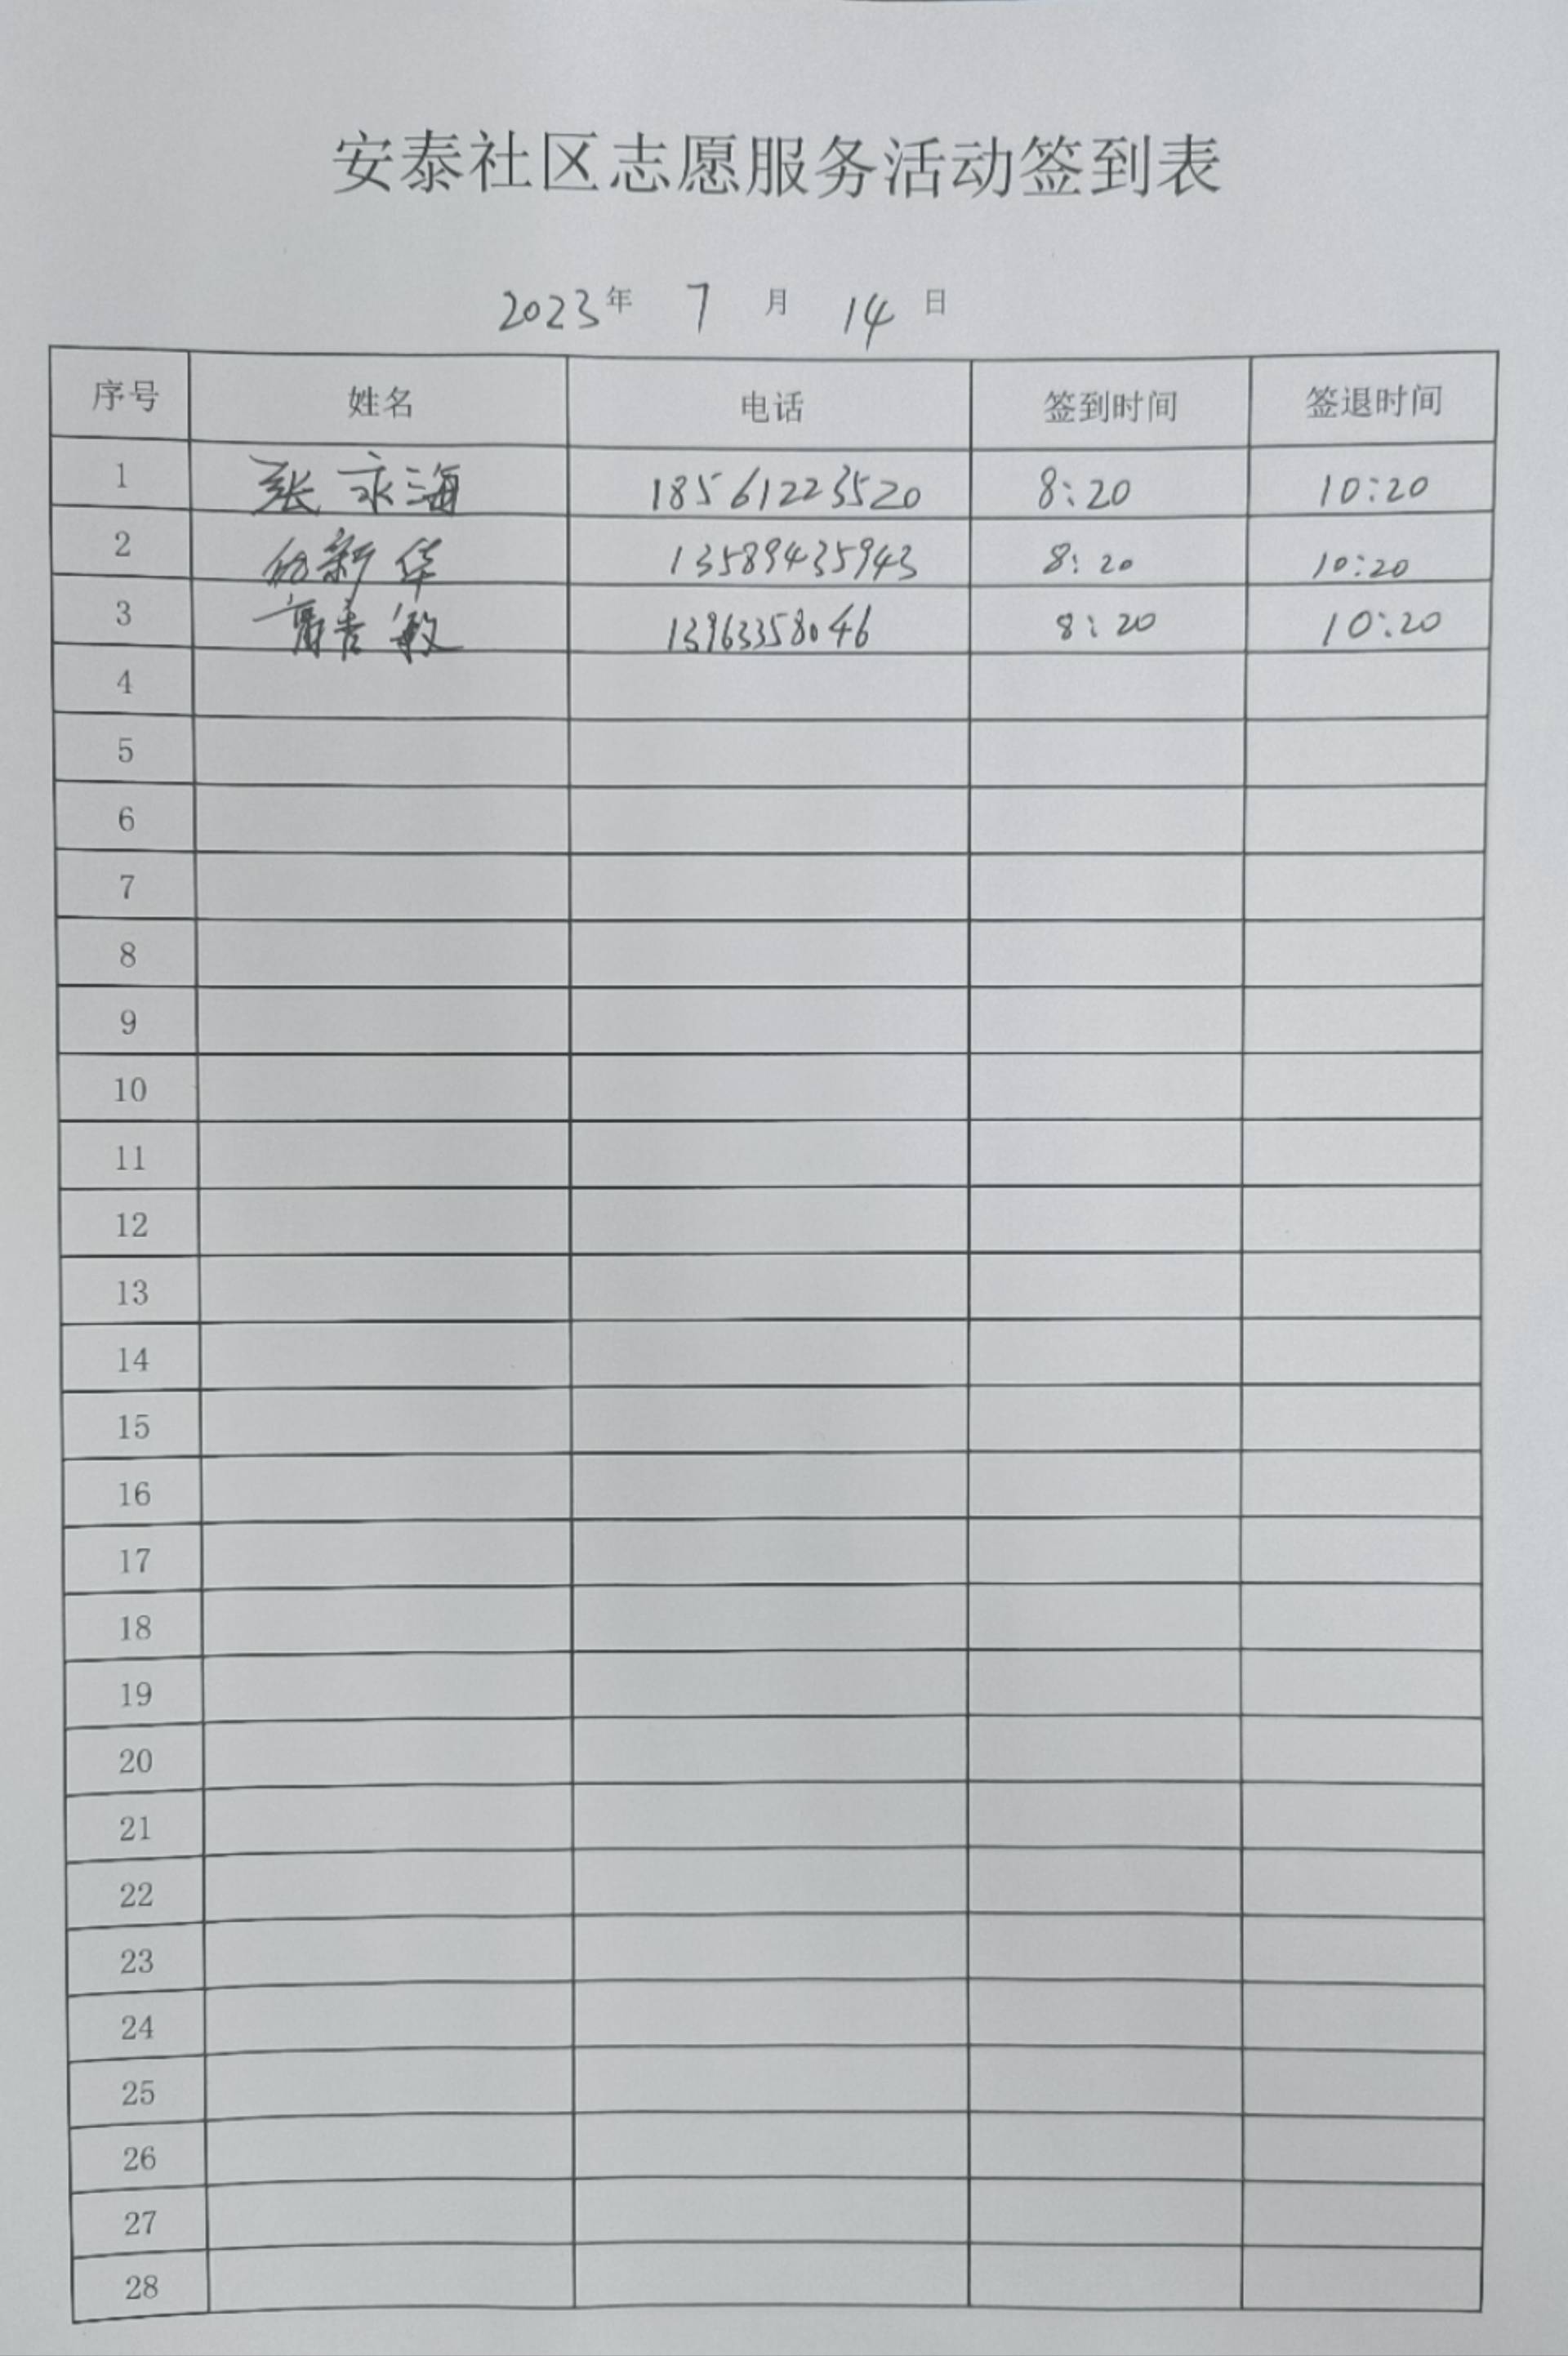 安泰社区志愿服务活动签到表
2023年 7 月 14 日
序号 姓名 电话 签到时间 签退时间
1 张永海 18561223520 8:20 10:20
2 新华 13589435943 8:20 10:20
3 敏 13963358046 8:20 10:20
4
5
6
7
8
9
10
11
12
13
14
15
16
17
18
19
20
21
22
23
24
25
26
27
28